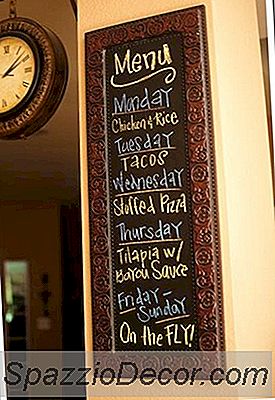 Menu
Monday
Chicken & Rice
Tuesday
TACOS
Wednesday
Stuffed Pizza
Thursday
Tilapia w/
Bayou Sauce
Friday
Sunday
On the FLY!
SpazzioDecor.com